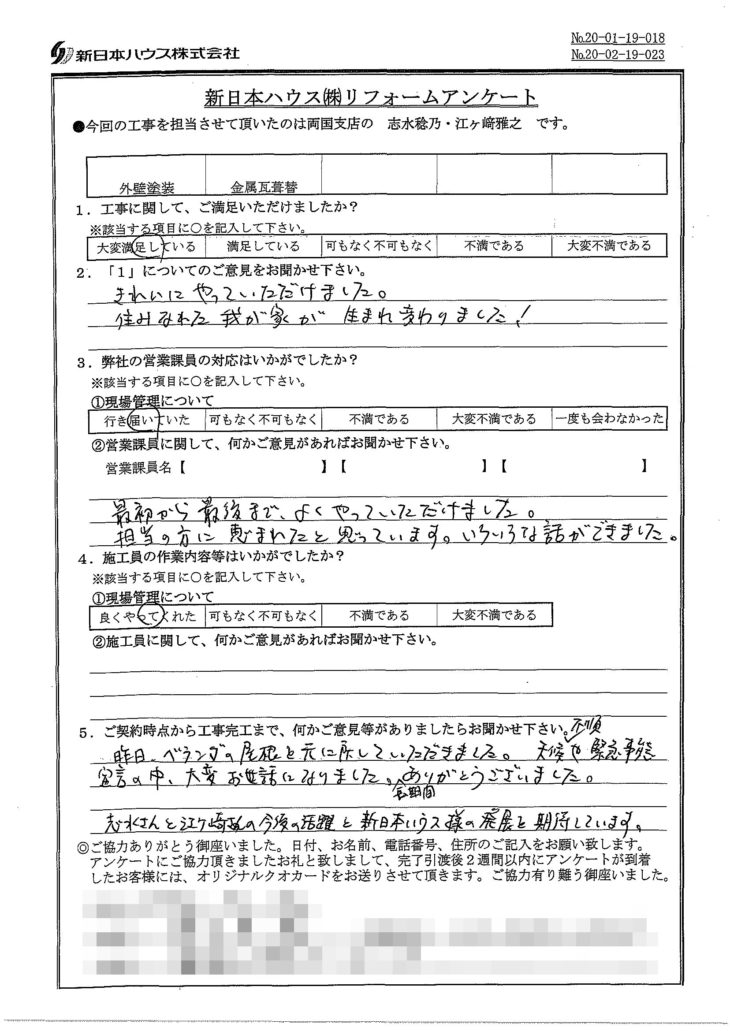 新日本ハウス株式会社
№20-01-19-018
№20-02-19-023
新日本ハウス㈱リフォームアンケート
●今回の工事を担当させて頂いたのは両国支店の 志水稔乃・江ヶ﨑雅之 です。
外壁塗装 金属瓦葺替
1．工事に関して、ご満足いただけましたか？
※該当する項目に○を記入して下さい。
大変満足している 満足している 可もなく不可もなく 不満である 大変不満である
2．「1」についてのご意見をお聞かせ下さい。
きれいにやっていただけました。
住みなれた我が家が生まれ変わりました！
3．弊社の営業課員の対応はいかがでしたか？
※該当する項目に○を記入して下さい。
①現場管理について
行き届いていた 可もなく不可もなく 不満である 大変不満である 一度も会わなかった
②営業課員に関して、何かご意見があればお聞かせ下さい。
営業課員名【 】【 】【 】
最初から最後まで、よくやっていただけました。
担当の方に恵まれたと思っています。いろいろな話ができました。
4．施工員の作業内容等はいかがでしたか？
※該当する項目に○を記入して下さい。
①現場管理について
良くやってくれた 可もなく不可もなく 不満である 大変不満である
②施工員に関して、何かご意見があればお聞かせ下さい。
5．ご契約時点から工事完工まで、何かご意見等がありましたらお聞かせ下さい。
不順
昨日、ベランダの屋根を元に戻していただきました。天候や緊急事態
宣言の中、大変お世話になりました。ありがとうございました。
長期間
志水さんと江ヶ崎さんの今後の活躍と新日本ハウス様の発展を期待しています。
◎ご協力ありがとう御座いました。日付、お名前、電話番号、住所のご記入をお願い致します。
アンケートにご協力頂きましたお礼と致しまして、完了引渡後2週間以内にアンケートが到着
したお客様には、オリジナルクオカードをお送りさせて頂きます。ご協力有り難う御座いました。